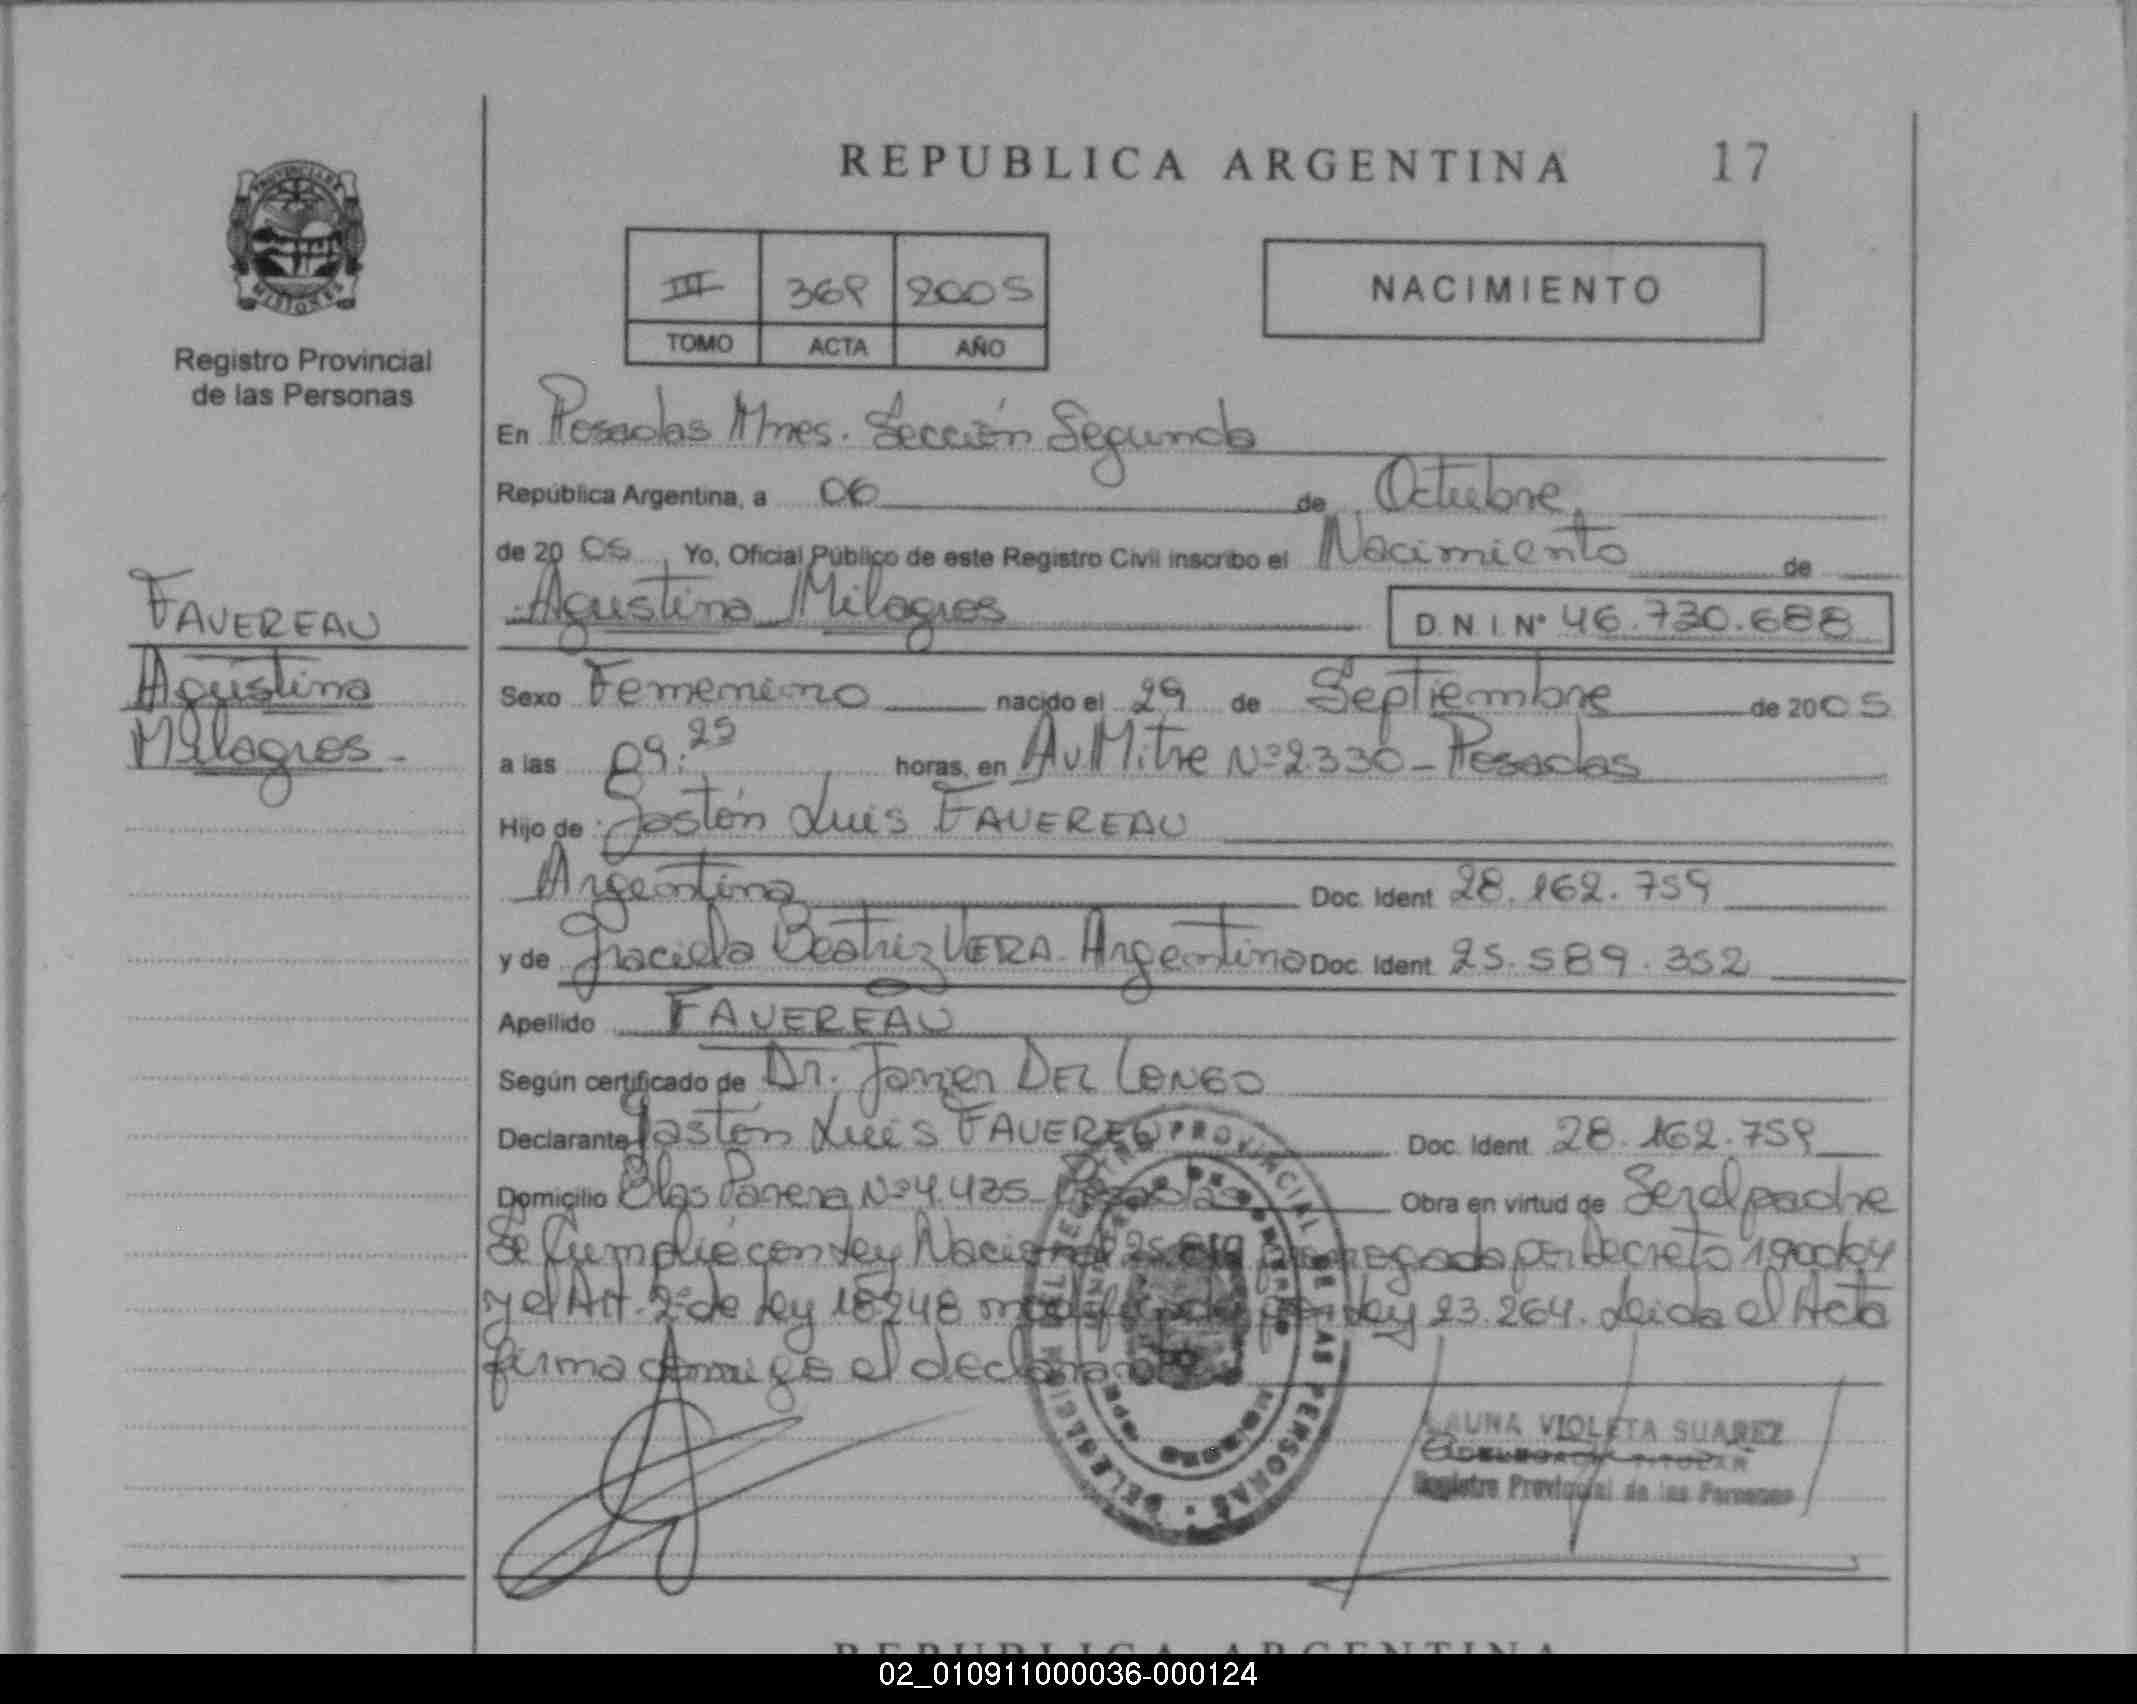 REPUBLICA ARGENTINA 17
PROVINCIA DE MISIONES
Registro Provincial
de las Personas
III 369 2005
TOMO ACTA AÑO
NACIMIENTO
En Posadas Mnes. Sección Segunda
República Argentina, a 06 de Octubre
de 2005, Yo, Oficial Público de este Registro Civil inscribo el Nacimiento de
Agustina Milagros D.N.I. Nº 46.730.688
FAVEREAU
Agustina
Milagros.-
Sexo Femenino nacido el 29 de Septiembre de 2005
a las 09:25 horas, en Av Mitre Nº 2.330 - Posadas
Hijo de Gastón Luis FAVEREAU
Argentina Doc. Ident 28.162.759
y de Graciela Beatriz VERA. Argentina Doc. Ident 25.589.352
Apellido FAVEREAU
Según certificado de Dr. Javier DEL LONGO
Declarante Gastón Luis FAVEREAU Doc. Ident. 28.162.759
Domicilio Blas Parera Nº 4.435 Posadas Obra en virtud de Ser el padre
Se Cumplió con Ley Nacional 25.819 prorrogada por Decreto 1900/04
y el Art. 2º de Ley 18248 modificada por Ley 23.264. Leida el Acta
firma conmigo el declarante
REGISTRO PROVINCIAL DE LAS PERSONAS
VIOLETA SUAREZ
Registro Provincial de las Personas
REPUBLICA ARGENTINA
02_010911000036-000124